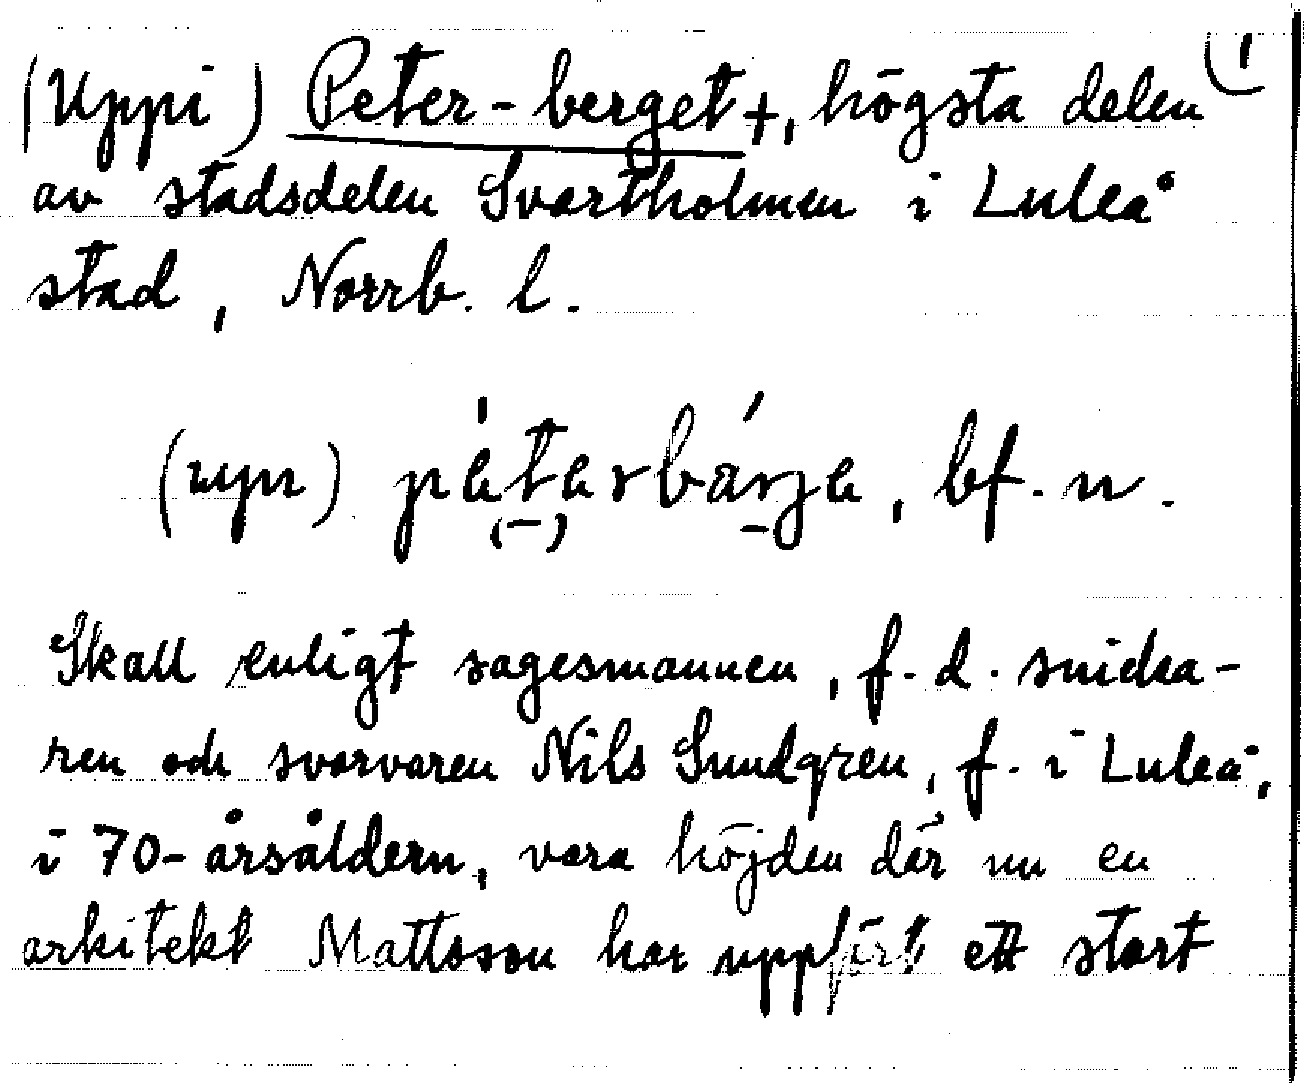 (Uppi) Peter-berget +, högsta delen (1
av stadsdelen Svartholmen i Luleå
stad, Norrb. l.
(up), bf. n.
Skall enligt sagesmannen, f. d. snicka-
ren och svarvaren Nils Sundgren, f. i Luleå,
i 70-årsåldern, vara höjden där nu en
arkitekt Mattsson har uppfört ett stort